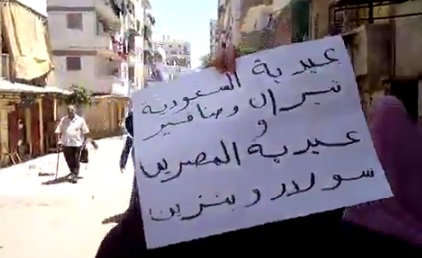 عيدية السعودية
تيران وصنافير
و
عيدية المصرين
سولار وبنزين